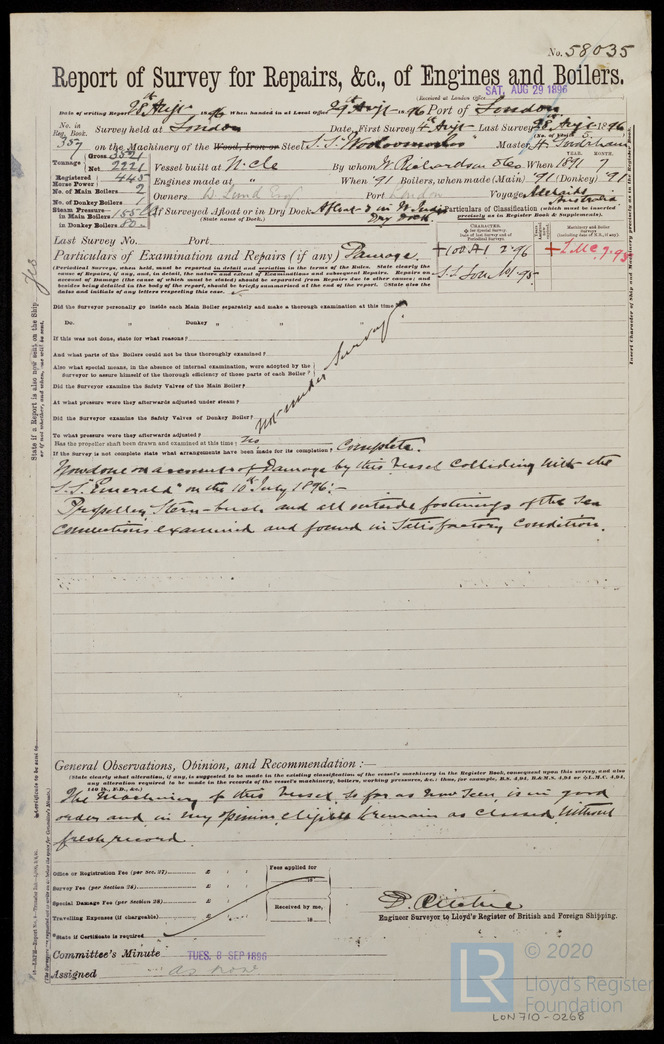 No. 58035
Report of Survey for Repairs, &c., of Engines and Boilers.
(Received at London Office SAT. AUG 29 1896
Date of writing Report 28th Augt 1896 When handed in at Local Office 29th Augt 1896 Port of London
No. in Reg. Book. 357 Survey held at London Date, First Survey 4th Augt Last Survey 28th Augt 1896
(No. of Visits 5.)
on the Machinery of the Wood, Iron or Steel S.S. Woolloomooloo Master
Tonnage Gross 3521 Net 2221 Vessel built at N.Cle By whom W. Richardson & Co. When 1891 YEAR. MONTH. 7
Registered Horse Power 445 Engines made at " When '91 Boilers, when made (Main) '91 (Donkey) '91
No. of Main Boilers 2
No. of Donkey Boilers 1 Owners W. Lund Esq Port London Voyage Adelaide Australia
Steam Pressure in Main Boilers 155 lbs in Donkey Boilers 80 If Surveyed Afloat or in Dry Dock Afloat & in W. India Dry Dock.
(State name of Dock.)
Particulars of Classification (which must be inserted precisely as in Register Book & Supplements).
Last Survey No. Port
CHARACTER.
+100A1 2.96
S.S. Lon No1-95
Machinery and Boiler Surveys
+LMC 9.95
Particulars of Examination and Repairs (if any) Damage.
(Periodical Surveys, when held, must be reported in detail and seriatim in the terms of the Rules. State clearly the causes of Repairs, if any, and, in detail, the nature and extent of Examinations and subsequent Repairs. Repairs on account of Damage (the cause of which must be stated) should be separated from Repairs due to other causes; and besides being detailed in the body of the report, should be briefly summarised at the end of the report. State also the dates and initials of any letters respecting this case.
Did the Surveyor personally go inside each Main Boiler separately and make a thorough examination at this time?
Do. " Donkey " " "
If this was not done, state for what reasons?
And what parts of the Boilers could not be thus thoroughly examined?
Also what special means, in the absence of internal examination, were adopted by the Surveyor to assure himself of the thorough efficiency of those parts of each Boiler?
Did the Surveyor examine the Safety Valves of the Main Boiler?
At what pressure were they afterwards adjusted under steam?
Did the Surveyor examine the Safety Valves of Donkey Boiler?
To what pressure were they afterwards adjusted?
not under Survey.
Has the propeller shaft been drawn and examined at this time? no
If the Survey is not complete state what arrangements have been made for its completion? Complete.
Now done on account of Damage by this vessel colliding with the
S.S. "Emerald" on the 10th July 1896:-
Propeller, Stern-bush and all outside fastenings of the Sea
Connections examined and found in Satisfactory Condition.
General Observations, Opinion, and Recommendation :—
(State clearly what alteration, if any, is suggested to be made in the existing classification of the vessel's machinery in the Register Book, consequent upon this survey, and also any alteration required to be made in the records of the vessel's machinery, boilers, working pressures, &c.: thus, for example, B.S. 4,94, B.&M.S. 4,94 or +L.M.C. 4,94, 140 lb., F.D., &c.)
The Machinery of this Vessel so far as now seen, is in good
order and in my opinion eligible to remain as classed without
fresh record.
Office or Registration Fee (per Sec. 27) £ : :
Survey Fee (per Section 28) £ : :
Special Damage Fee (per Section 28) £ : :
Travelling Expenses (if chargeable) £ : :
Fees applied for 18
Received by me, 18
*State if Certificate is required
D. Ritchie
Engineer Surveyor to Lloyd's Register of British and Foreign Shipping.
Committee's Minute TUES. 8 SEP 1896
Assigned as now
State if a Report is also now sent on the Ship Yes
Insert Character of Ship and Machinery precisely as in the Register Book.
LR © 2020
Lloyd's Register
Foundation
LON710-0268